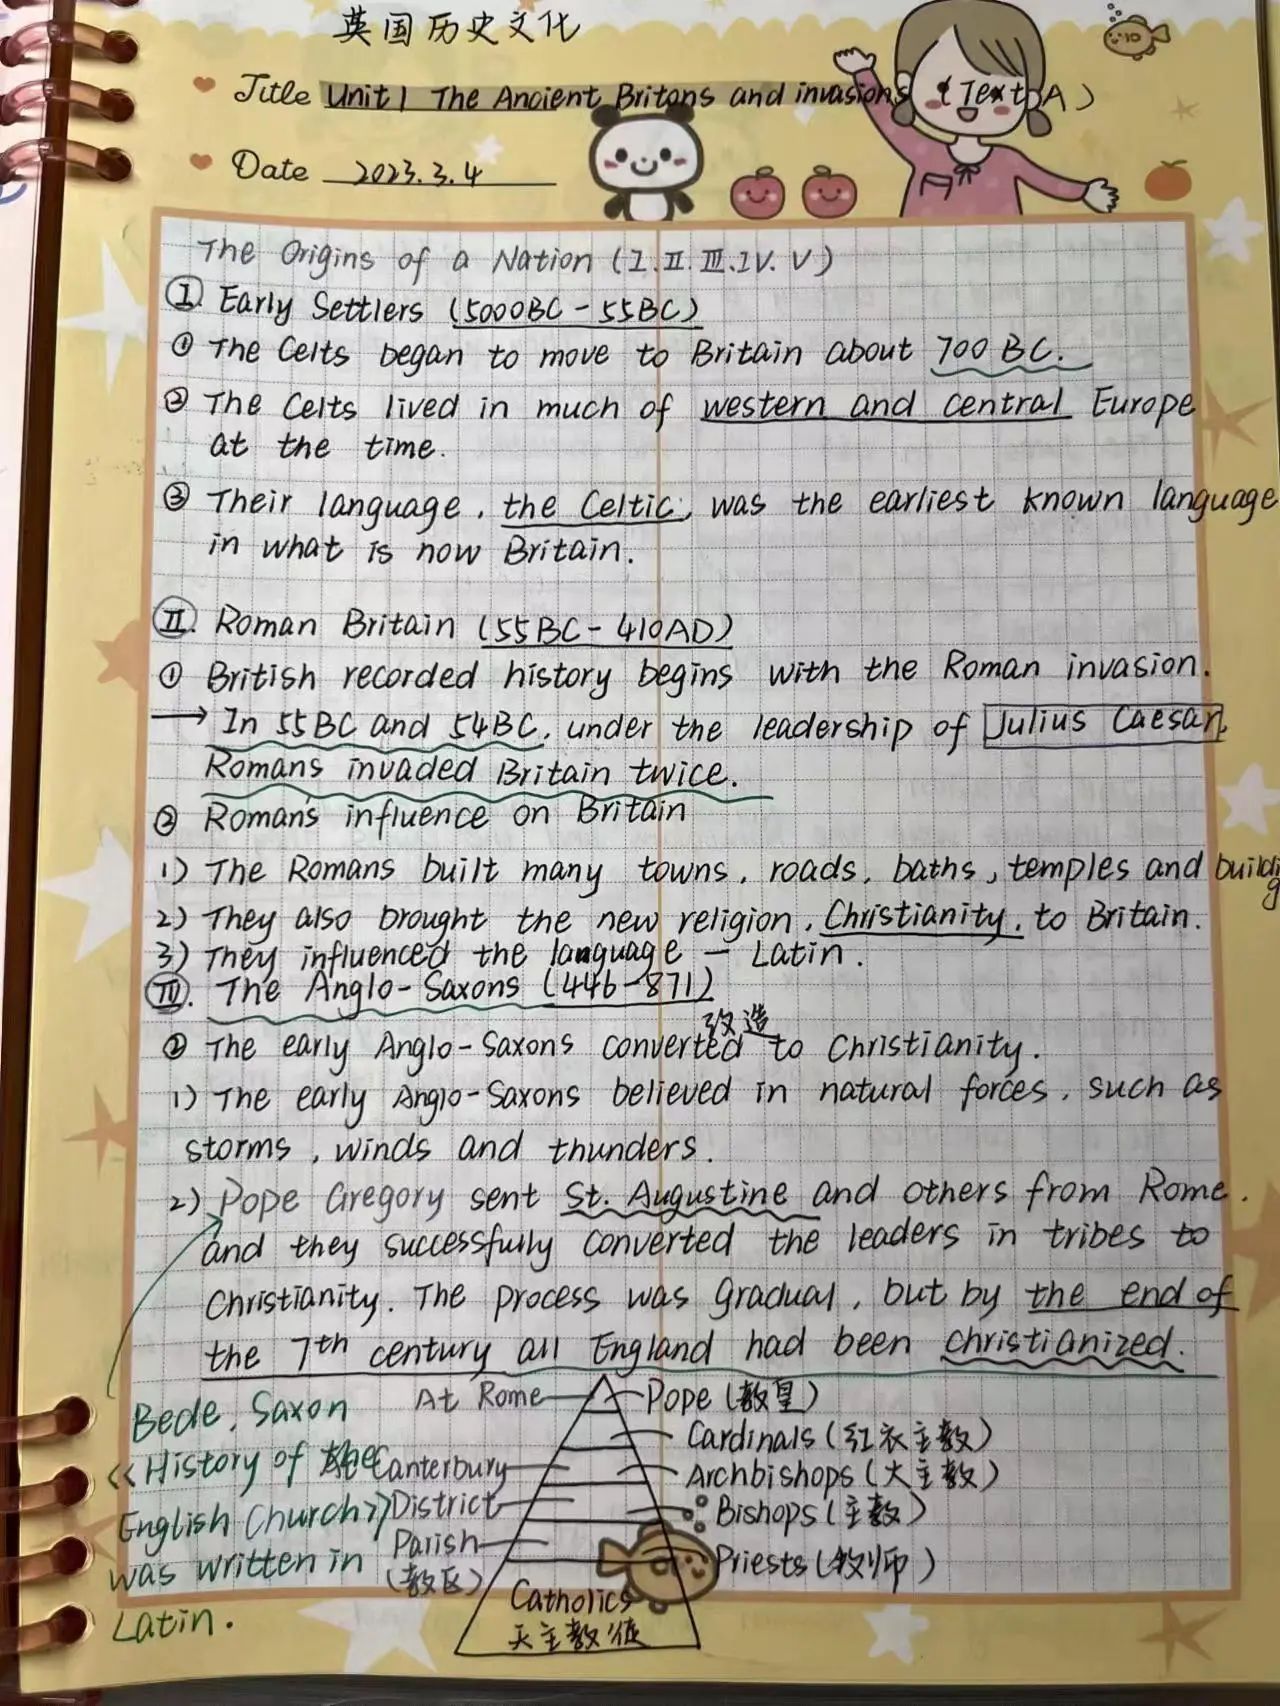 英国历史文化
Title Unit 1 The Ancient Britons and invasions (Text A)
Date 2023.3.4
The Origins of a Nation (I.II.III.IV.V)
Ⅰ. Early Settlers (5000BC-55BC)
① The Celts began to move to Britain about 700 BC.
② The Celts lived in much of western and central Europe
at the time.
③ Their language, the Celtic, was the earliest known language
in what is now Britain.
Ⅱ. Roman Britain (55BC-410AD)
① British recorded history begins with the Roman invasion.
→ In 55BC and 54BC, under the leadership of Julius Caesar,
Romans invaded Britain twice.
② Roman's influence on Britain
1) The Romans built many towns, roads, baths, temples and building
2) They also brought the new religion, Christianity, to Britain.
3) They influenced the language - Latin.
Ⅲ. The Anglo-Saxons (446-871)
改造
② The early Anglo-Saxons converted to Christianity.
1) The early Anglo-Saxons believed in natural forces, such as
storms, winds and thunders.
2) Pope Gregory sent St. Augustine and others from Rome.
and they successfully converted the leaders in tribes to
Christianity. The process was gradual, but by the end of
the 7th century all England had been christianized.
At Rome Pope (教皇)
Cardinals (红衣主教)
Canterbury Archbishops (大主教)
District Bishops (主教)
Parish Priests (牧师)
(教区)
Catholics
天主教徒
Bede, Saxon
《History of the
English Church》
was written in
Latin.